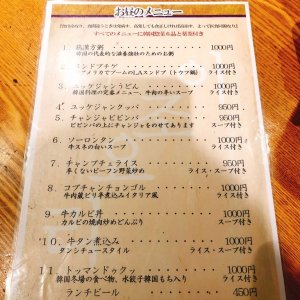 お昼のメニュー
すべてのメニューに韓国惣菜6品と薬茶付き
1. 鶏漢方粥 1000円
韓国の代表的な滋養強壮のためのお粥
2. スンドブチゲ 1000円
アメリカでブームのLAスンドブ(トウフ鍋) ライス付き
3. ユッケジャンうどん 1000円
韓国料理の定番メニュー牛肉の辛いスープ ライス付き
4. ユッケジャンクッパ 950円
5. チャンジャビビンバ 950円
ビビンバの上にチャンジャをのせてあります スープ付き
6. ソーロンタン 1000円
牛スネの白いスープ ライス付き
7. チャンプチェライス 950円
辛くないビーフン野菜炒め ライス・スープ付き
8. コプチャンチョンゴル 1000円
牛肉蔵ピリ辛煮込みイタリア風 ライス付き
9. 牛カルビ丼 1000円
カルビの焼肉炒めどんぶり スープ付き
10. 牛タン煮込み 1000円
タンシチュースタイル ライス・スープ付き
11. トッマンドゥクッ 1000円
韓国冬場の食べ物、水餃子韓国もち入り ライス付き
ランチビール 450円